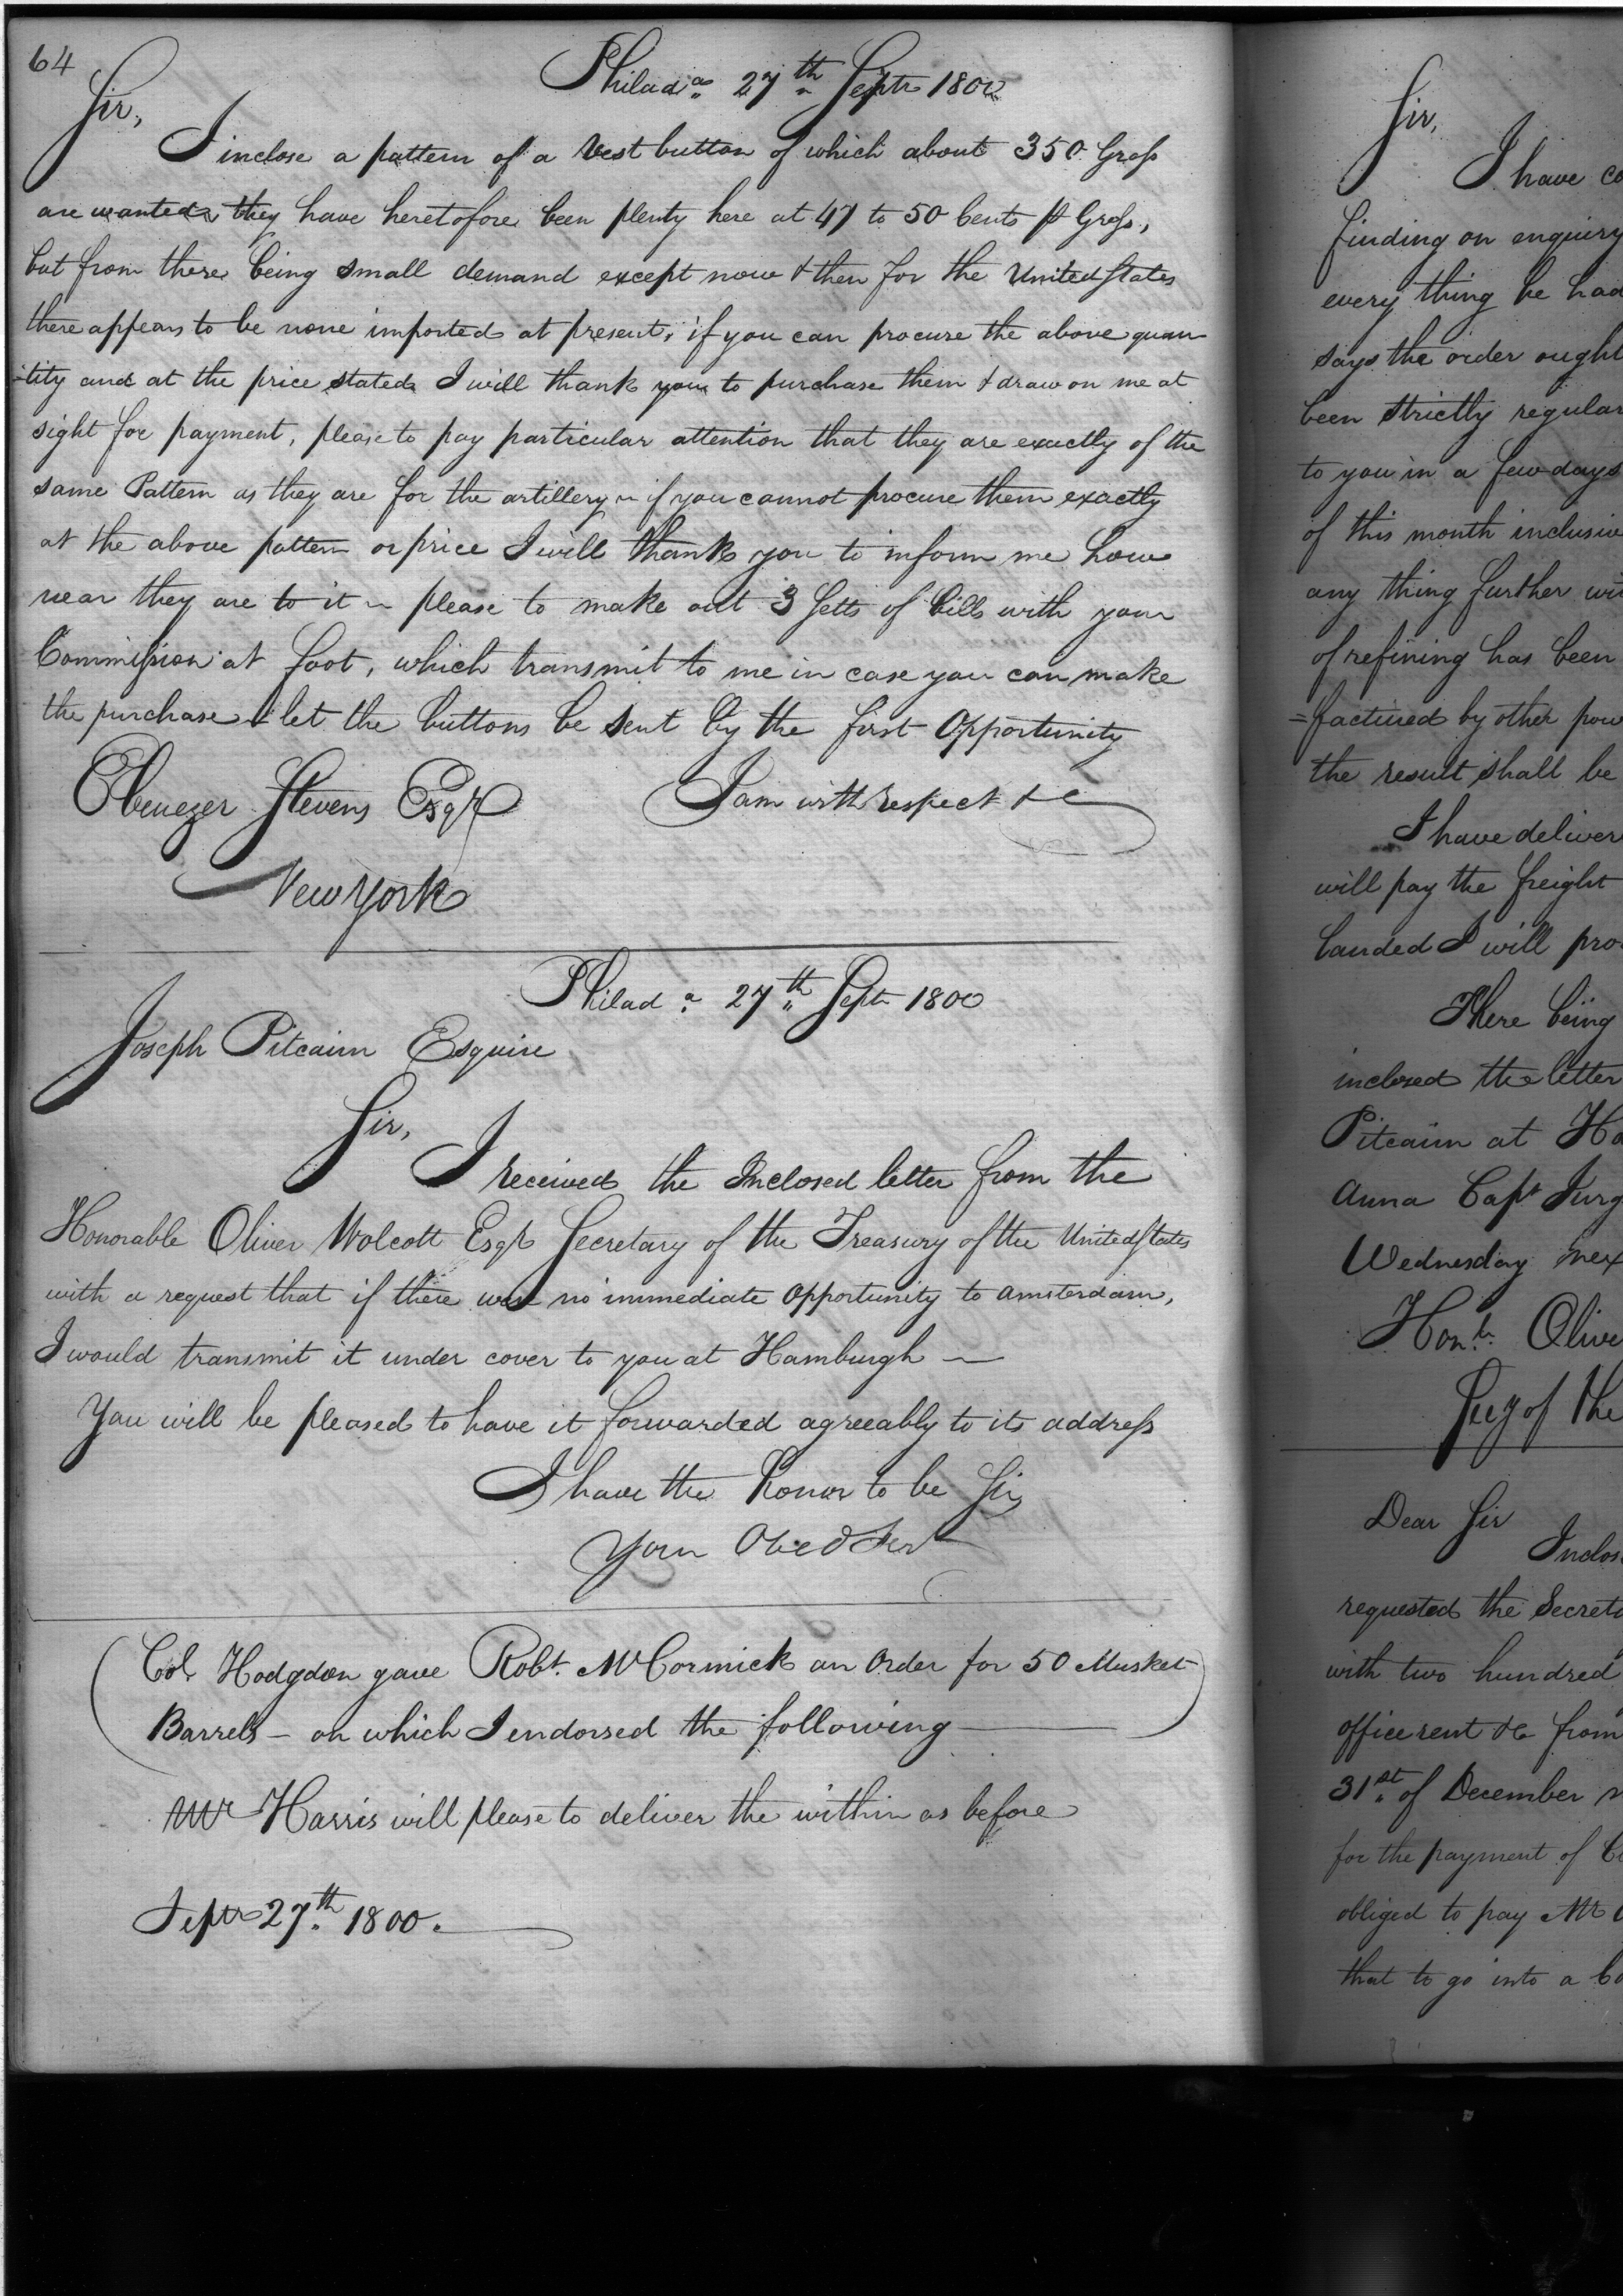 64
Philad.a 27th Septr 1800
Sir,
I inclose a pattern of a Vest button of which about 350 Gross
are wanted, they have heretofore been plenty here at 47 to 50 Cents pr Gross,
but from there being small demand except now & then for the United States
there appears to be none imported at present, if you can procure the above quan
-tity and at the price stated I will thank you to purchase them & draw on me at
sight for payment, please to pay particular attention that they are exactly of the
same Pattern as they are for the artillery ~ if you cannot procure them exactly
at the above pattern or price I will thank you to inform me how
near they are to it ~ please to make out 3 Setts of bills with your
Commission at foot, which transmit to me in case you can make
the purchase & let the buttons be sent by the first Opportunity
I am with respect &c
Ebenezer Stevens Esqr
New York
Philad.a 27th Septr 1800
Joseph Pitcairn Esquire
Sir,
I received the Inclosed letter from the
Honorable Oliver Wolcott Esqr Secretary of the Treasury of the United States
with a request that if there was no immediate opportunity to amsterdam,
I would transmit it under cover to you at Hamburgh —
You will be pleased to have it forwarded agreeably to its address
I have the Honor to be Sir,
Your Obed Servt
(Col. Hodgdon gave Robt. McCormick an Order for 50 Musket
Barrels — on which I endorsed the following —)
Mr Harris will please to deliver the within as before
Septr 27th. 1800.
Sir,
I have
finding on enquiry
every thing he had
says the order ought
been strictly regular
to you in a few days
of this month
any thing further
of refining has been
=factured by other
the result shall be
I have
will pay the freight
landed I will
There being
inclosed the letter
Pitcairn at
Anna Capt
Wednesday
Honl.
Secy of the
Dear Sir
requested the
with two hundred
office rent &c from
31st. of December
for the payment of
obliged to pay Mr
that to go into a